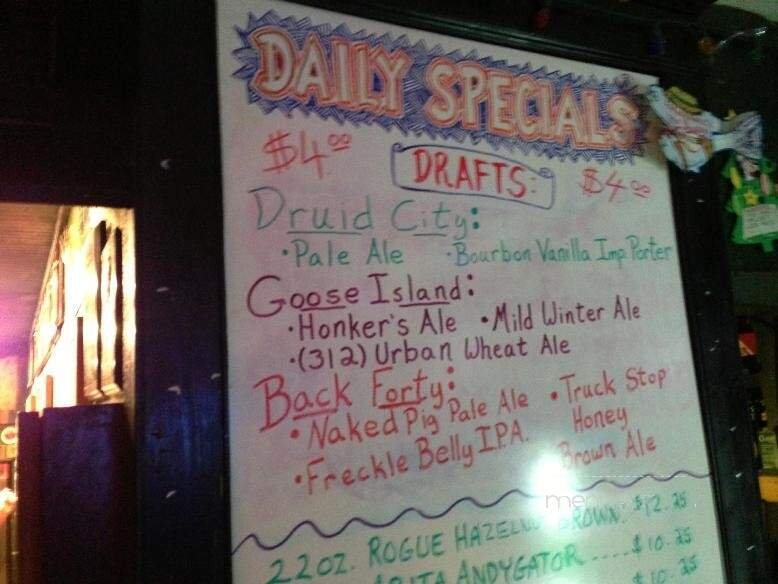 DAILY SPECIALS
$4.00 DRAFTS: $4.00
Druid City:
·Pale Ale ·Bourbon Vanilla Imp. Porter
Goose Island:
·Honker's Ale ·Mild Winter Ale
·(312) Urban Wheat Ale
Back Forty:
·Naked Pig Pale Ale ·Truck Stop
Honey
·Freckle Belly I.P.A. Brown Ale
22oz. ROGUE HAZELNUT BROWN. $12.25
ANDYGATOR.....$10.25
$10.25